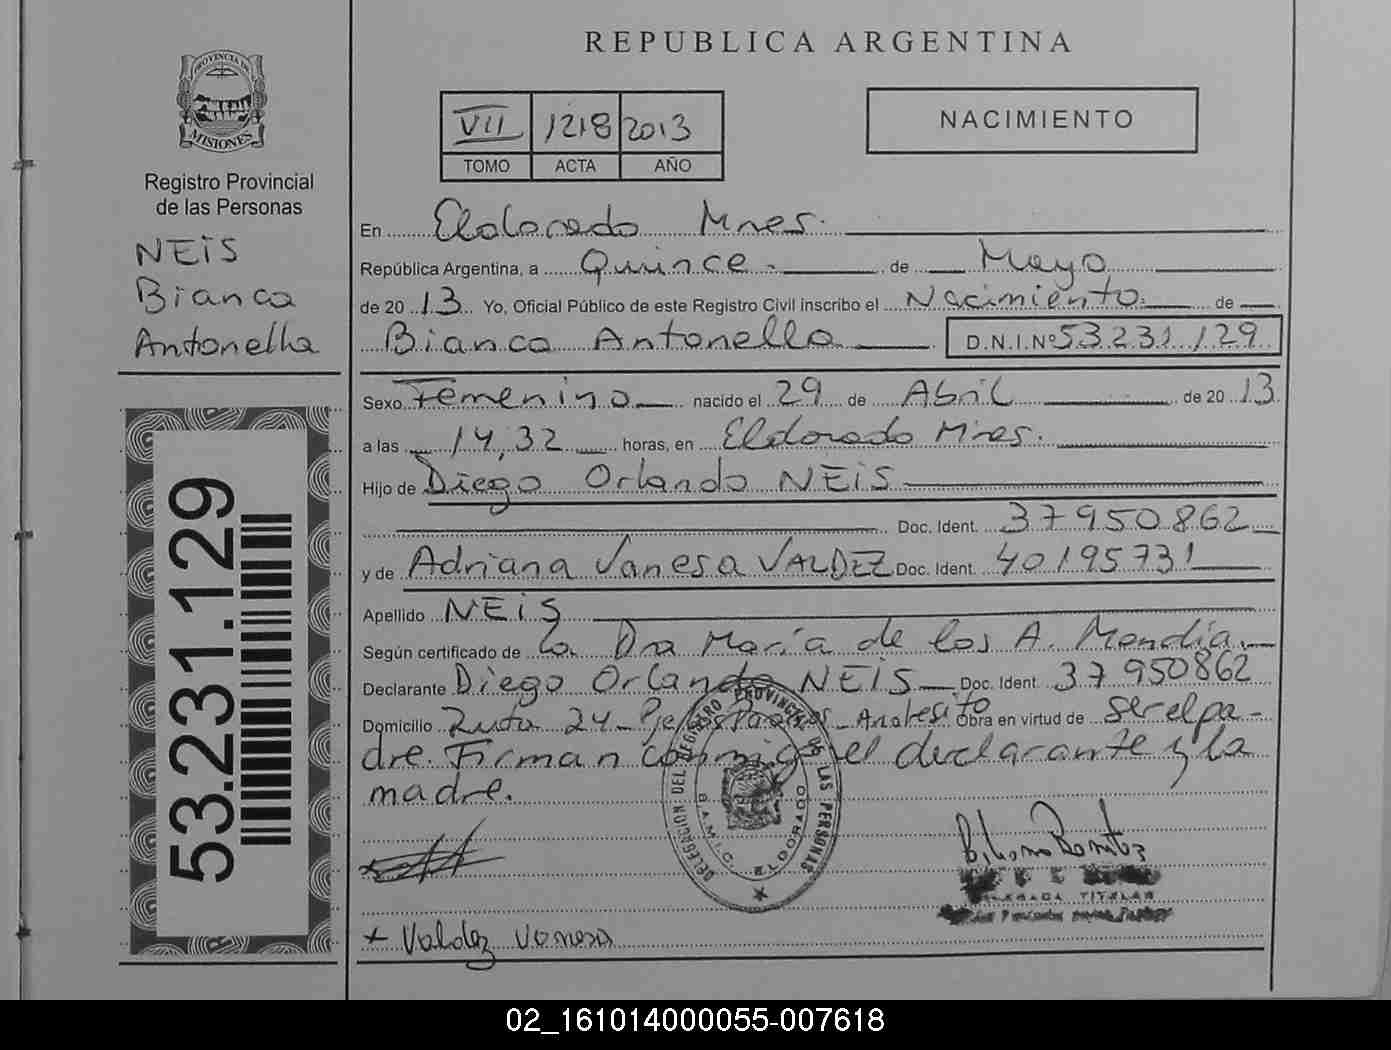 PROVINCIA DE
MISIONES
Registro Provincial
de las Personas
NEIS
Bianca
Antonella
53.231.129
REPUBLICA ARGENTINA
VII 1218 2013
TOMO ACTA AÑO
NACIMIENTO
En Eldorado Mnes.
República Argentina, a Quince de Mayo
de 2013 Yo, Oficial Público de este Registro Civil inscribo el Nacimiento de
Bianca Antonella D.N.I.Nº 53.231.129
Sexo Femenino nacido el 29 de Abril de 2013
a las 14,32 horas, en Eldorado Mnes.
Hijo de Diego Orlando NEIS
Doc. Ident. 37950862
y de Adriana Vanesa VALDEZ Doc. Ident. 40195731
Apellido NEIS
Según certificado de la Dra María de los A. Mendia
Declarante Diego Orlando NEIS Doc. Ident. 37950862
Domicilio Ruta 24 - Andresito Obra en virtud de ser el pa-
dre. Firman conmigo el declarante y la
madre.
DELEGACION DEL REGISTRO PROVINCIAL DE LAS PERSONAS
ELDORADO
DELEGADA TITULAR
+ Valdez Vanesa
02_161014000055-007618